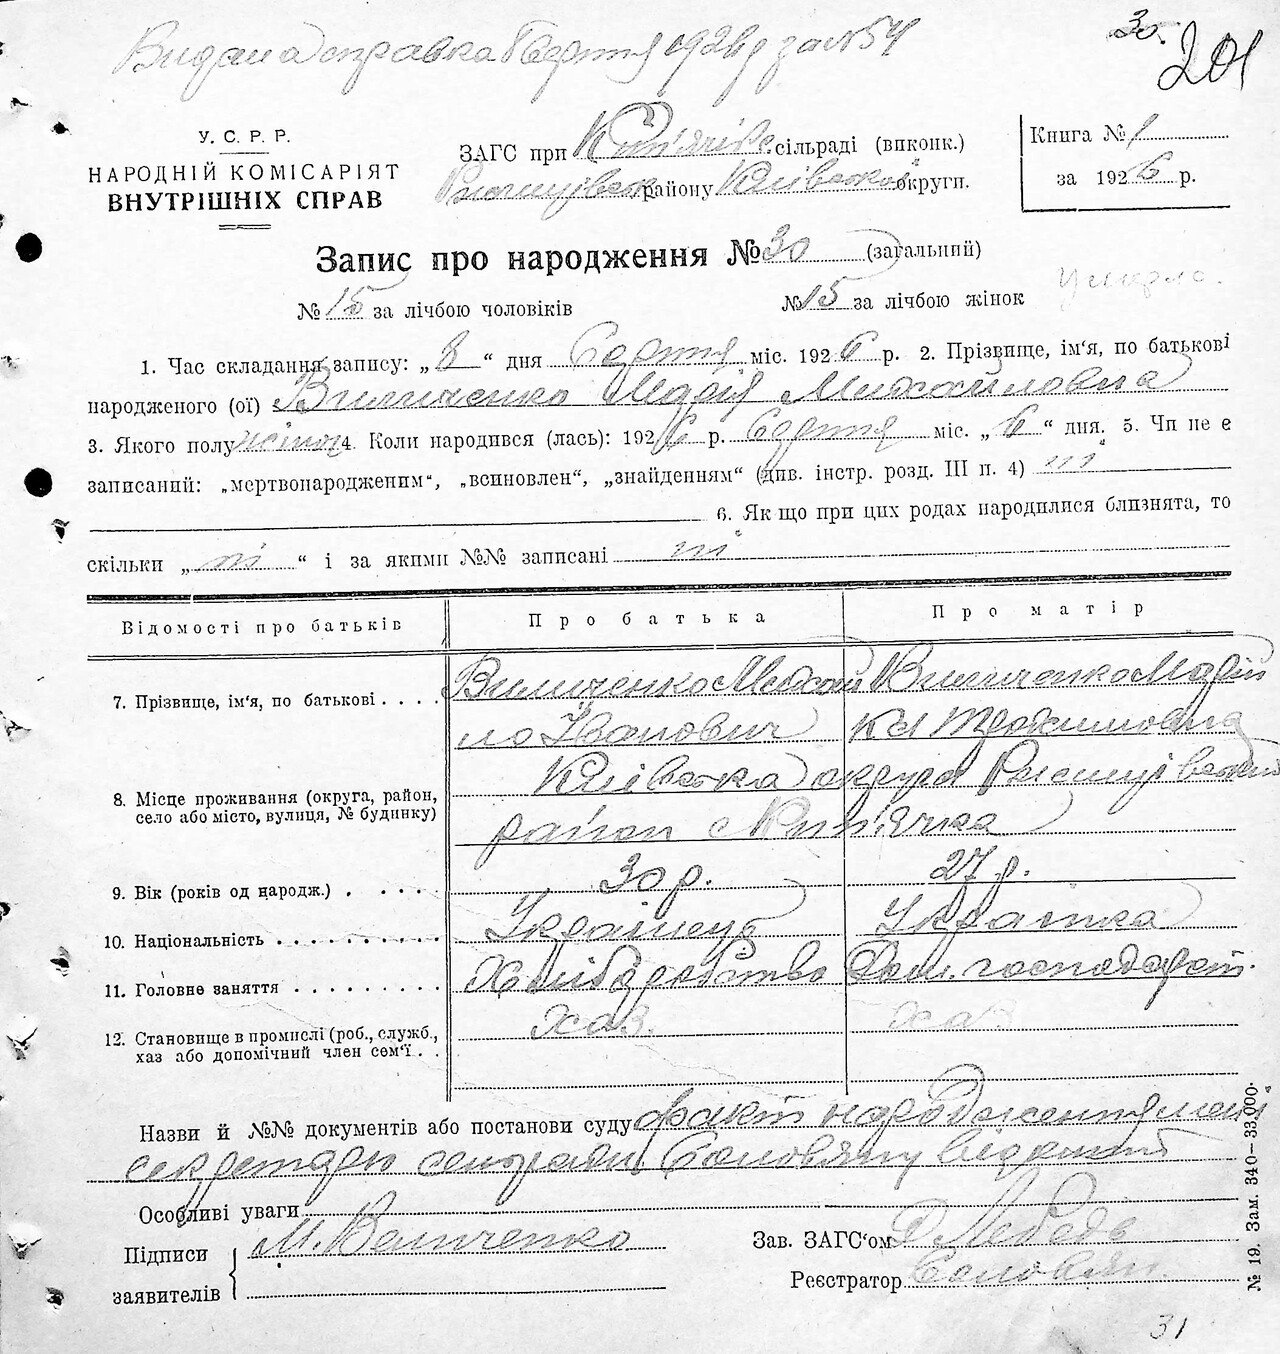 Видана справка 6 серпня 192 р за №54
30.
201
У. С. Р. Р.
НАРОДНІЙ КОМІСАРІЯТ
ВНУТРІШНІХ СПРАВ
ЗАГС при сільраді (виконк.)
району Київської округи.
Книга № 1
за 1926 р.
Запис про народження № 30 (загальний)
№ 15 за лічбою чоловіків
№ 15 за лічбою жінок
умерла.
1. Час складання запису: „ 8 “ дня Серпня міс. 1926 р. 2. Прізвище, ім‘я, по батькові
народженого (ої) Марія Михайловна
3. Якого полу жіноч 4. Коли народився (лась): 1926 р. Серпня міс. „ 6 “ дня. 5. Чи не є
записаний: „мертвонародженим“, „всиновлен“, „знайденням“ (див. інстр. розд. III п. 4) ні
6. Як що при цих родах народилися близнята, то
скільки „ ні “ і за якими №№ записані ні
Відомості про батьків
Про батька
Про матір
7. Прізвище, ім‘я, по батькові . . . .
Михай
ло Іванович
8. Місце проживання (округа, район,
село або місто, вулиця, № будинку)
Київська округа
район с
9. Вік (років од народж.) . . . . .
30 р.
27 р.
10. Національність . . . . . . . . . .
Українець
Українка
11. Головне заняття . . . . . . . . .
Хліборобство
Дом. господарст.
12. Становище в промислі (роб., служб.,
хаз або допомічний член сем‘ї . .
Хаз.
Хаз
Назви й №№ документів або постанови суду факт народження мені
секретарю сельради Соловяну відомий
Особливі уваги
Підписи
заявителів
М. Величенко
Зав. ЗАГС‘ом Лебедь
Реєстратор Соловян.
№ 19. Зам. 340—33,000.
31